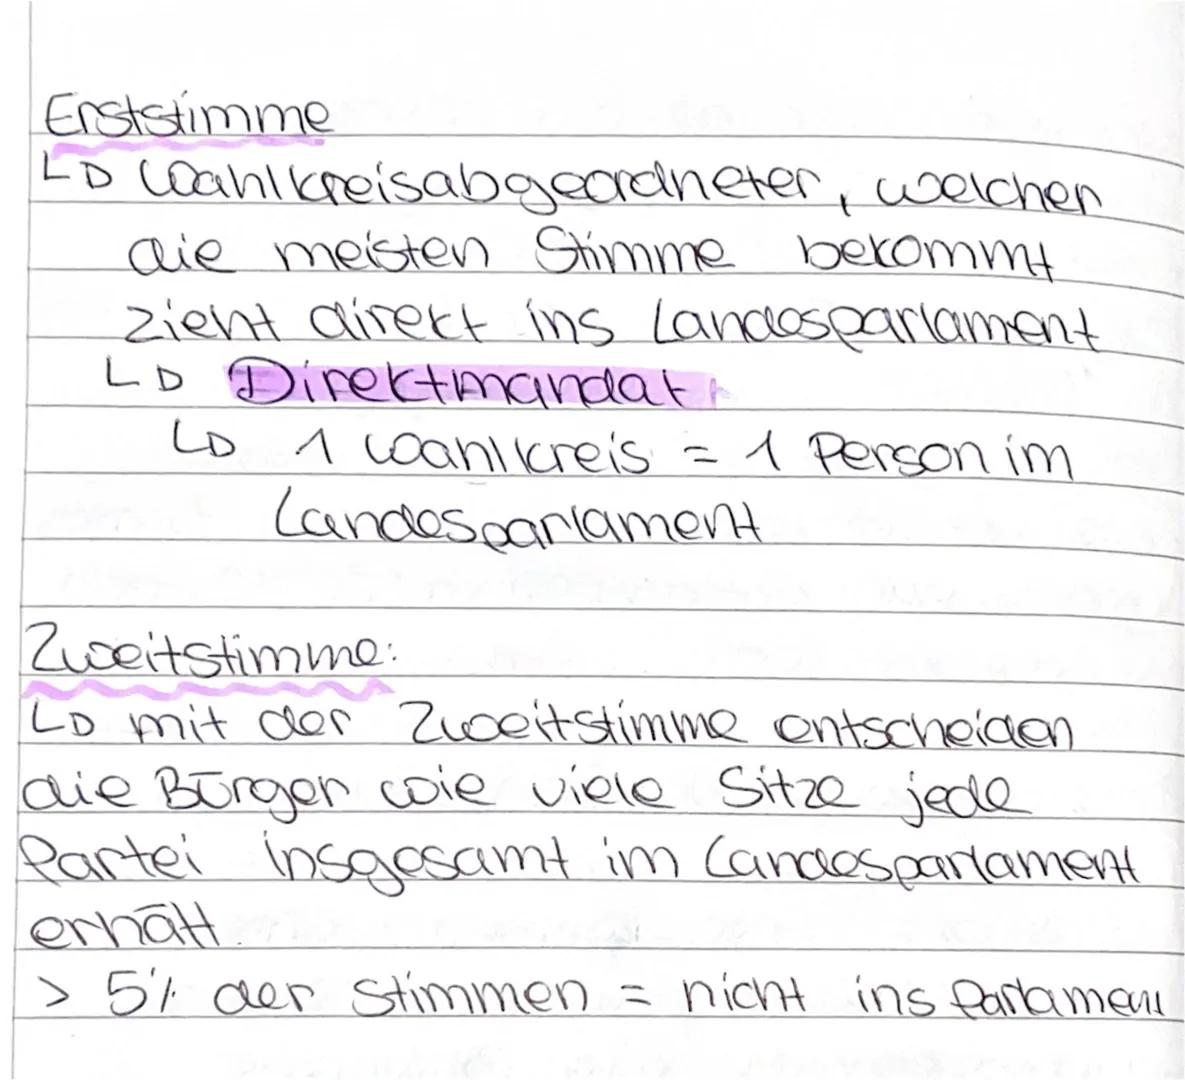 Erststimme
↳ Wahlkreisabgeordneter, welcher
die meisten Stimme bekommt
zieht direkt ins Landesparlament
↳ Direktmandat
↳ 1 Wahlkreis = 1 Person im
Landesparlament
Zweitstimme:
↳ mit der Zweitstimme entscheiden
die Bürger wie viele Sitze jede
Partei insgesamt im Landesparlament
erhält.
> 5% der Stimmen = nicht ins Parlament